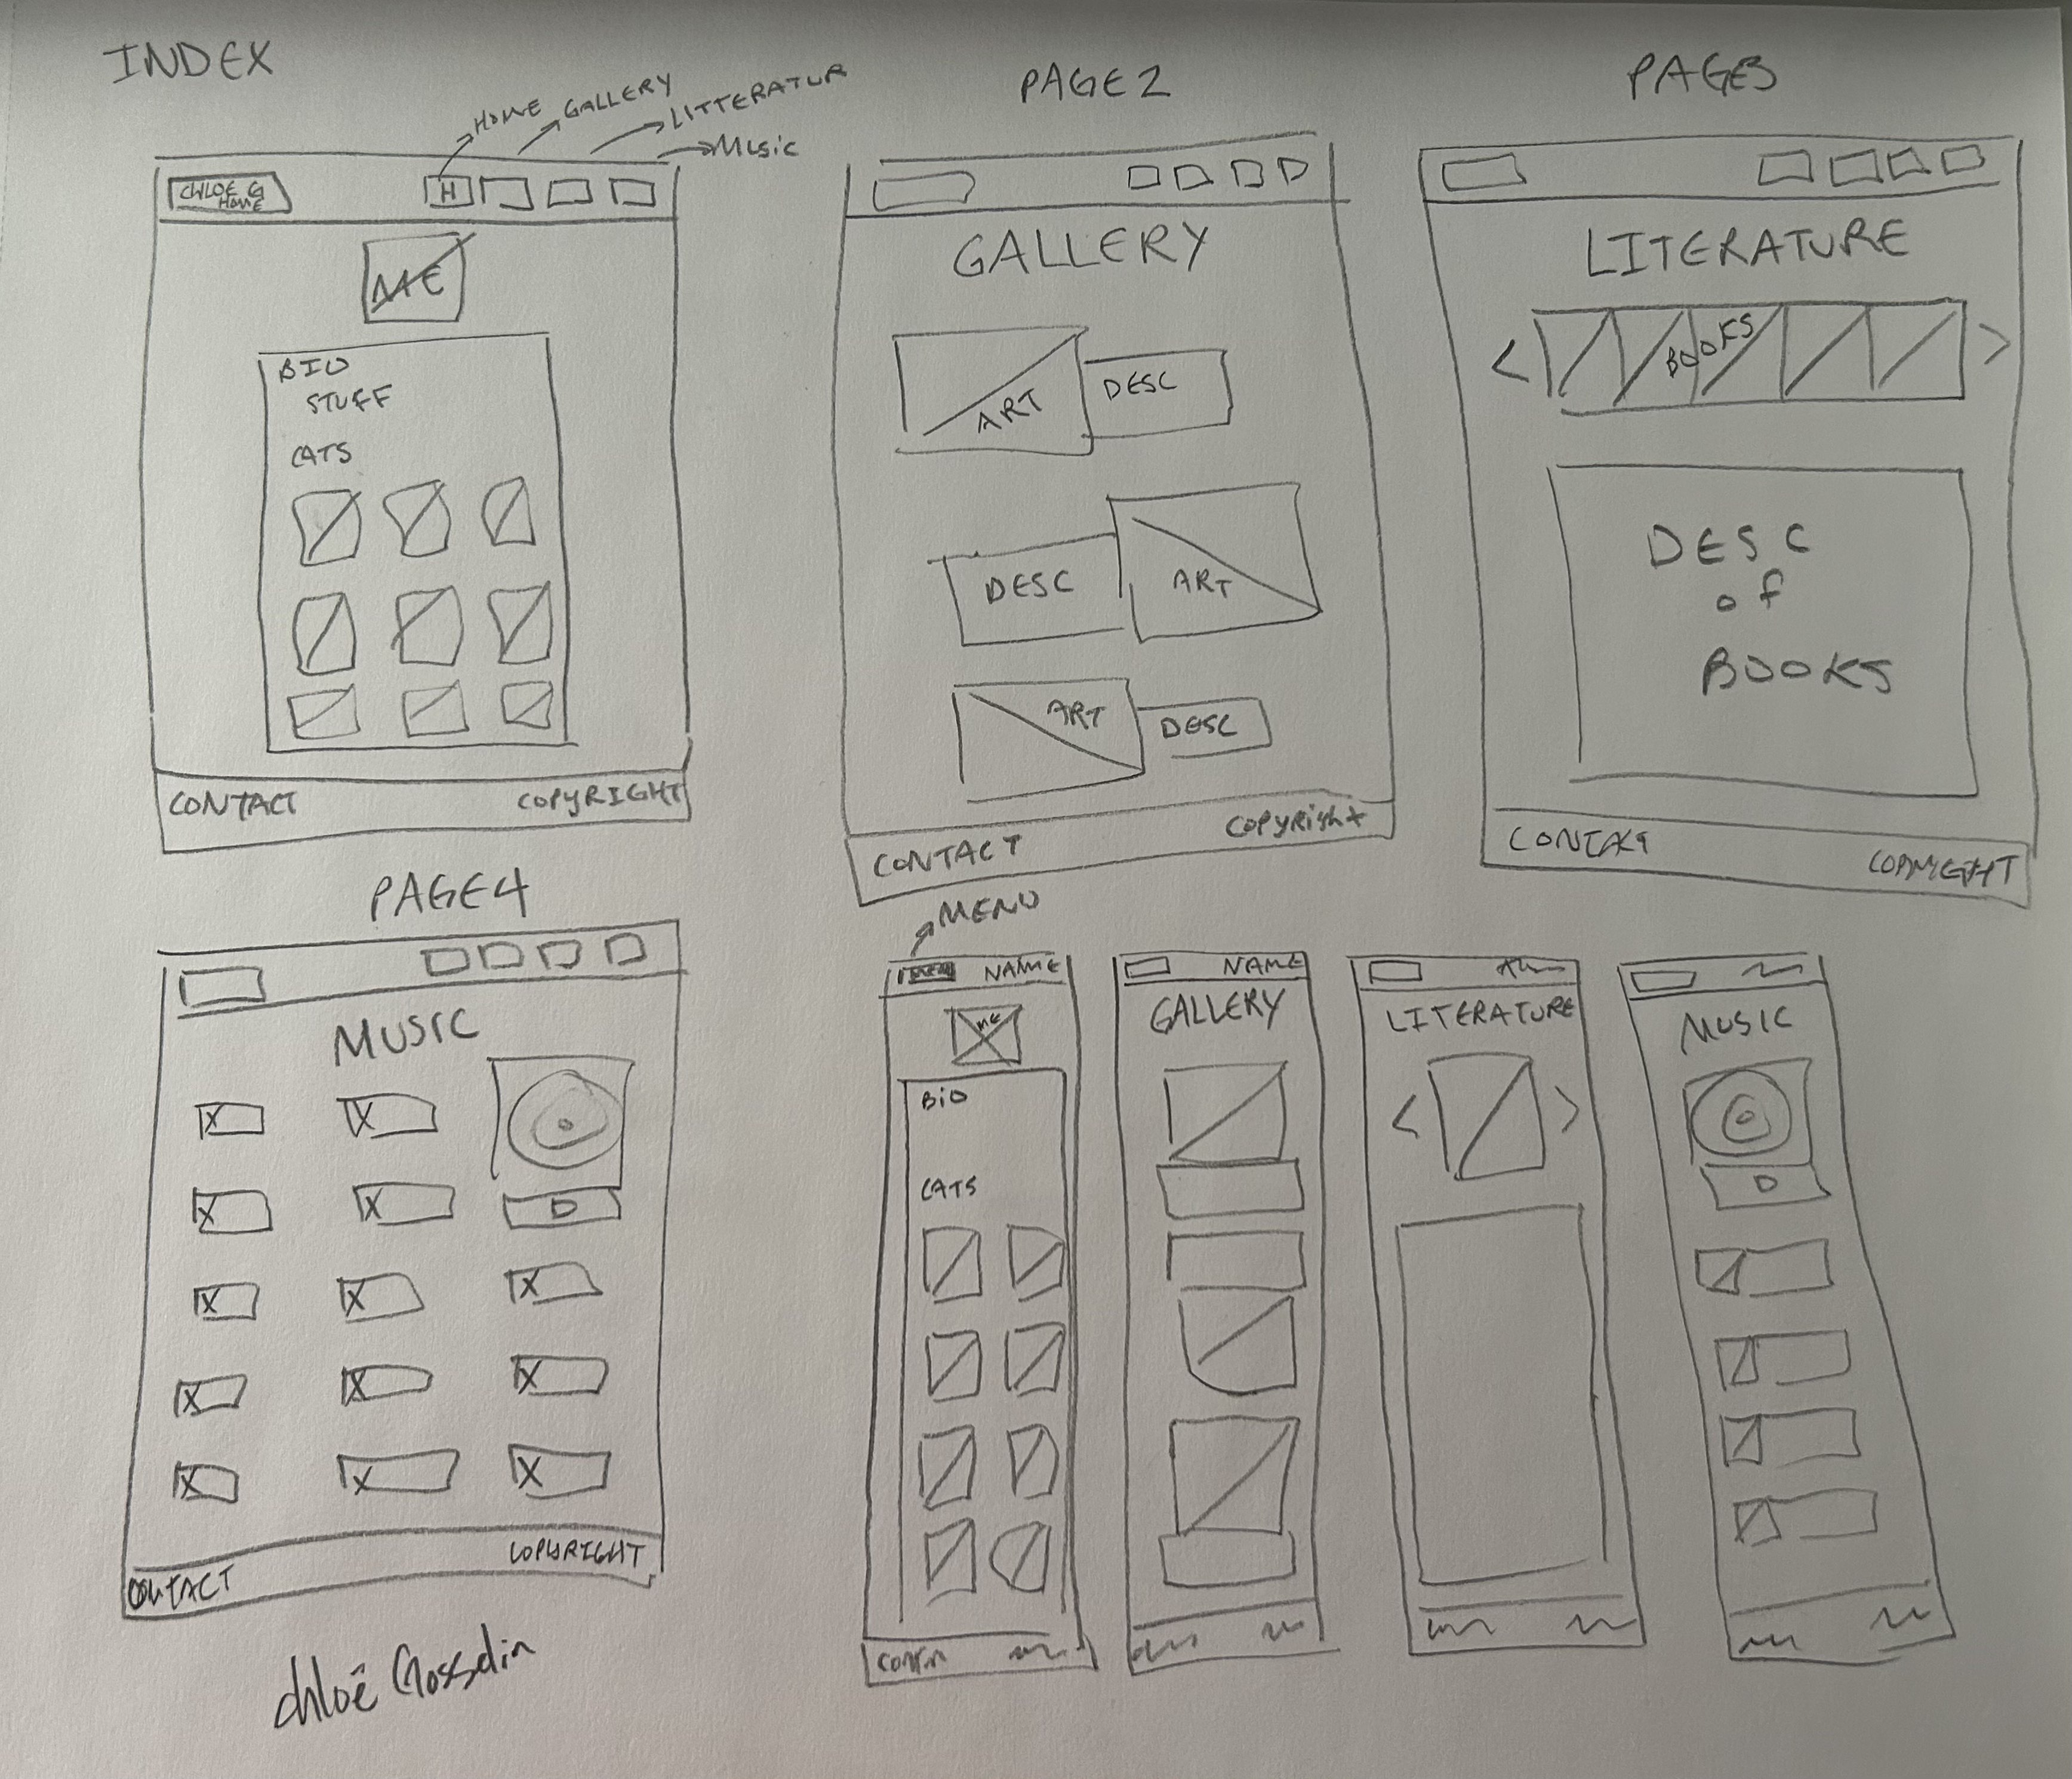 INDEX
HOME
GALLERY
LITTERATUR
Music
CHLOE G
HOME
H
ME
BIO
STUFF
CATS
CONTACT
COPYRIGHT
PAGE 2
GALLERY
ART
DESC
DESC
ART
ART
DESC
CONTACT
COPYRIGHT
PAGE3
LITERATURE
< BOOKS >
DESC
of
BOOKS
CONTACT
COPYRIGHT
PAGE4
MUSIC
X X
X X
X X X
X X X
X X X
CONTACT
COPYRIGHT
MENU
NAME
ME
BIO
CATS
NAME
GALLERY
LITERATURE
< >
MUSIC
Chloé Gosselin